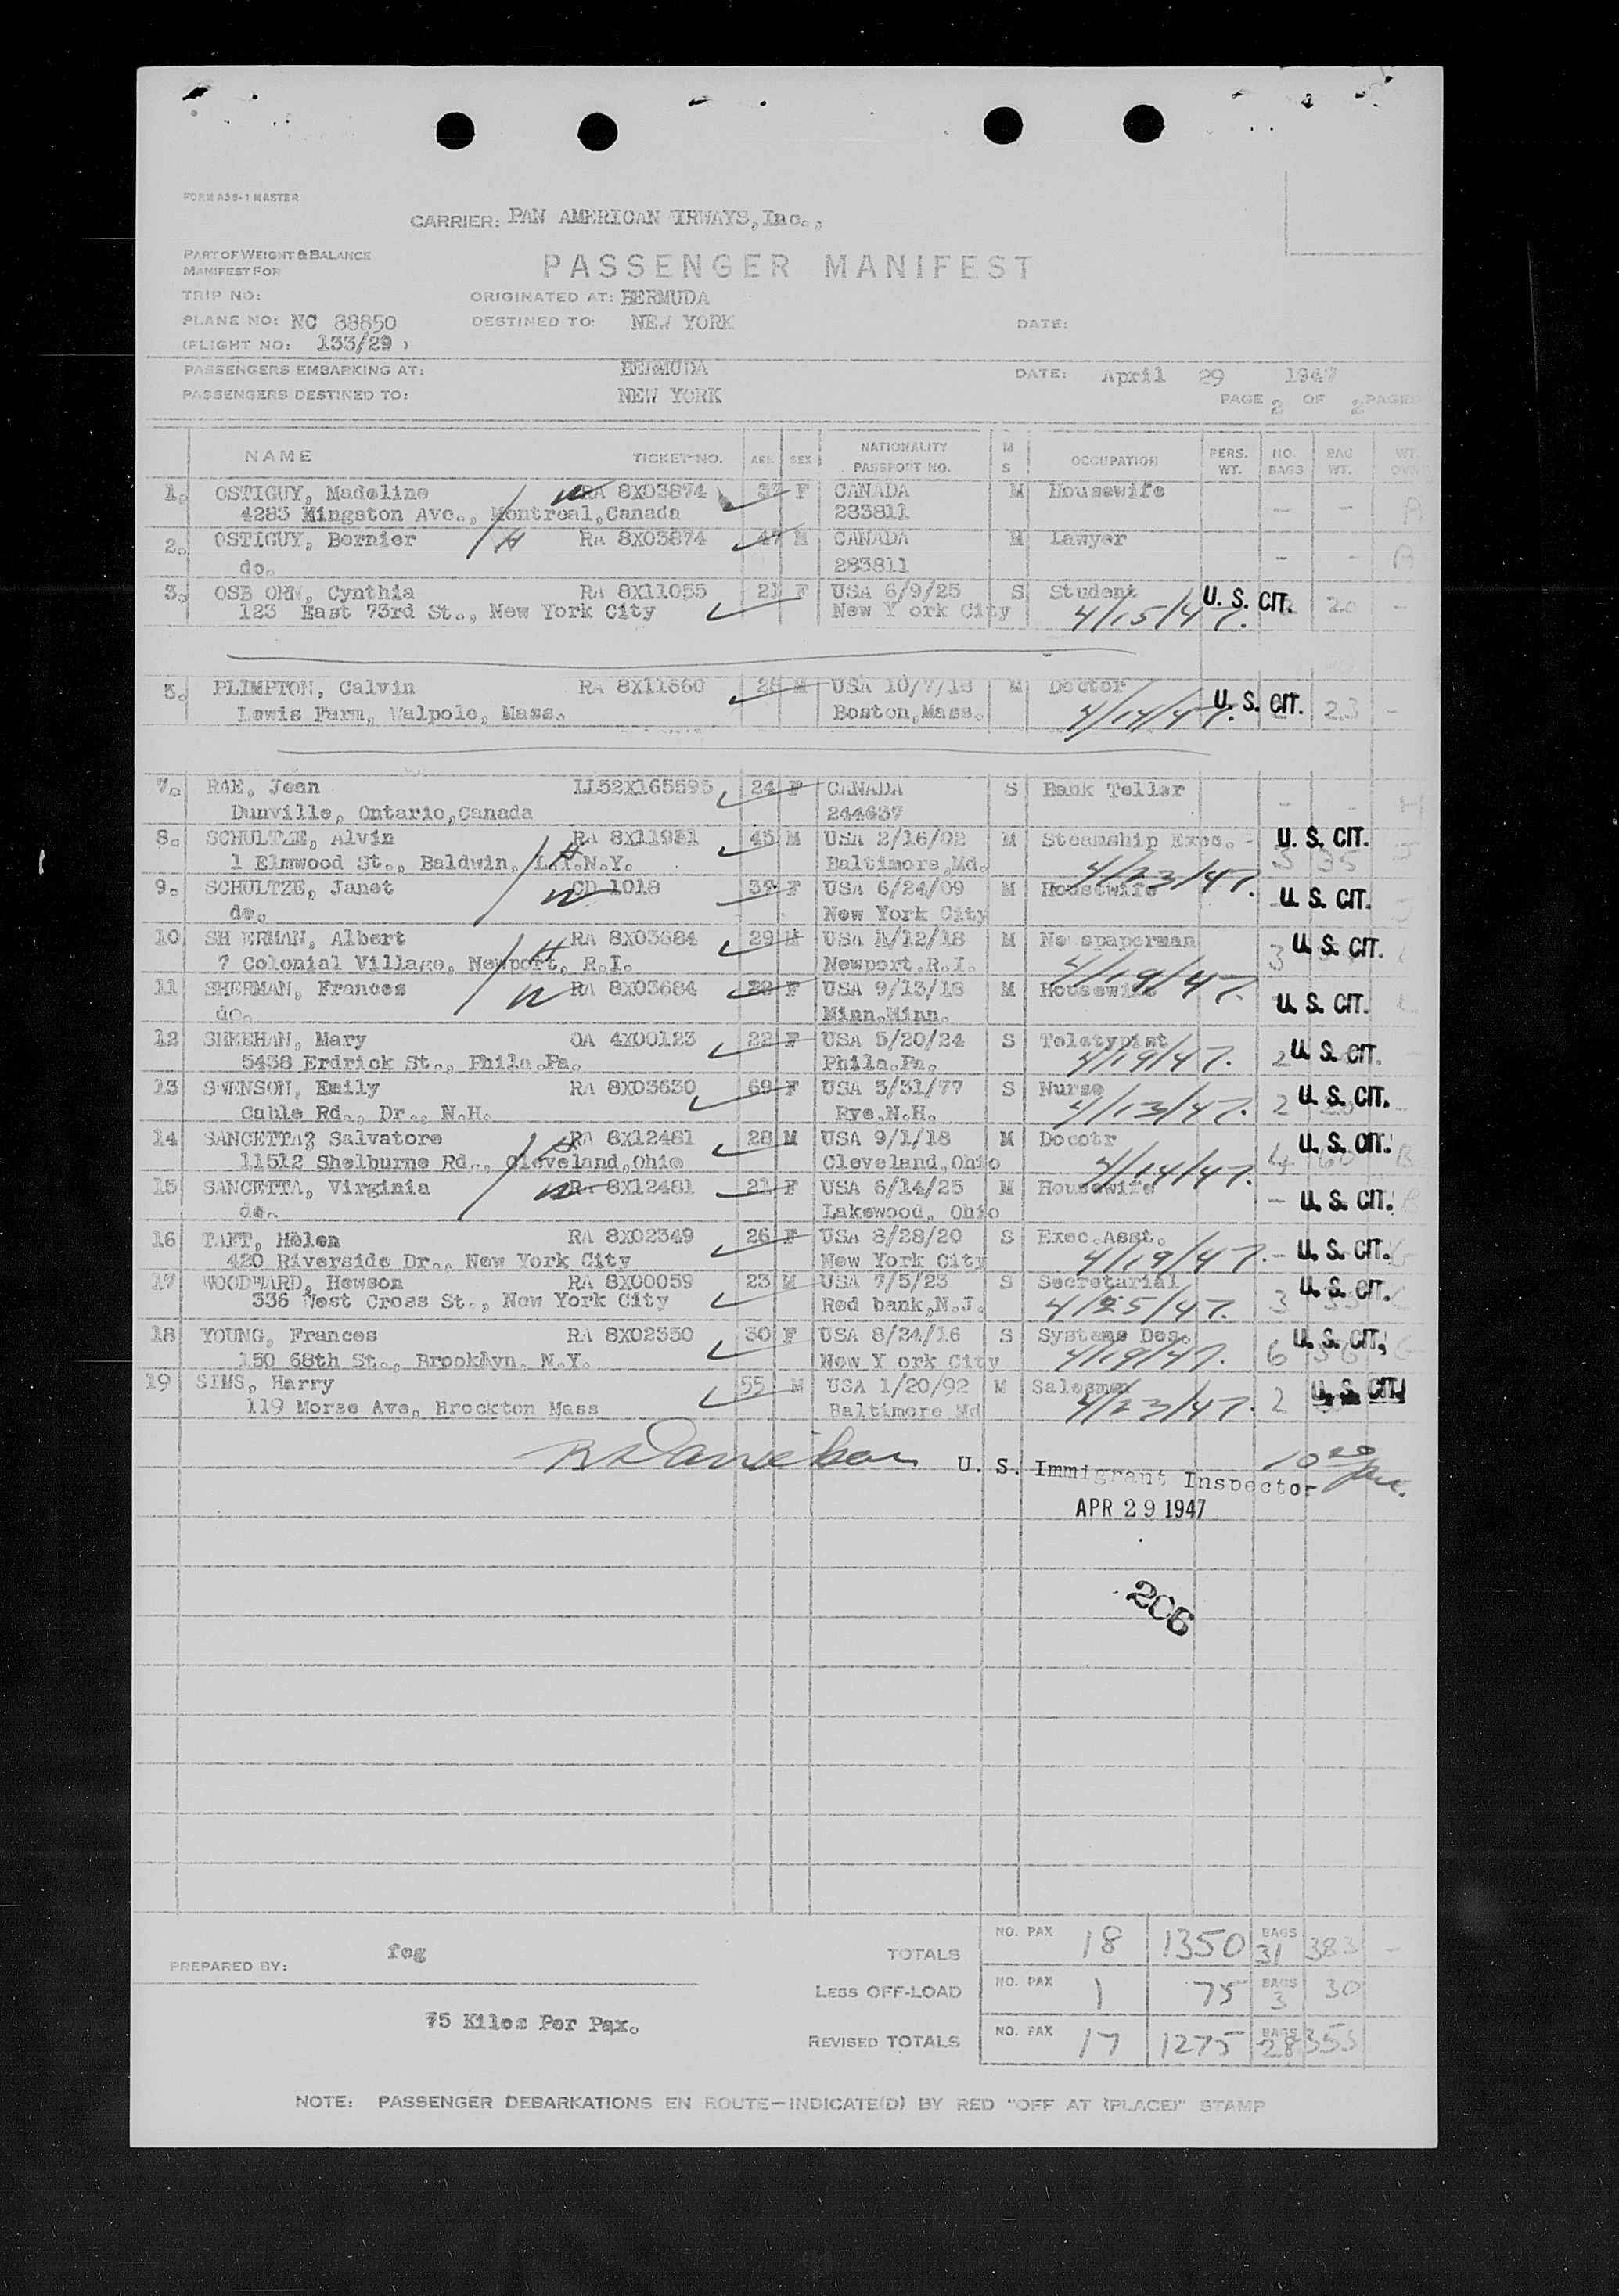 FORM A36-1 MASTER
CARRIER: PAN AMERICAN IRWAYS, Inc.,
PART OF WEIGHT & BALANCE
MANIFEST FOR
PASSENGER MANIFEST
TRIP NO: ORIGINATED AT: BERMUDA
PLANE NO: NC 88850 DESTINED TO: NEW YORK DATE:
(FLIGHT NO: 133/29 )
PASSENGERS EMBARKING AT: BERMUDA DATE: April 29 1947
PASSENGERS DESTINED TO: NEW YORK PAGE 2 OF 2 PAGES
NAME TICKET NO. AGE SEX NATIONALITY PASSPORT NO. M S OCCUPATION PERS. WT. NO. BAGS BAG WT.
1. OSTIGUY, Madeline W RA 8X03874 37 F CANADA M Housewife
4283 Kingston Ave., Montreal, Canada 283811 - - A
2. OSTIGUY, Bernier H RA 8X03874 47 M CANADA M Lawyer
do. 283811 - - A
3. OSB ORN, Cynthia RA 8X11055 21 F USA 6/9/25 S Student U. S. CIT. 20 -
123 East 73rd St., New York City New Y ork City 4/15/47.
5. PLIMPTON, Calvin RA 8X11560 28 M USA 10/7/18 M Doctor U. S. CIT. 23 -
Lewis Farm, Walpole, Mass. Boston, Mass. 4/14/47.
7. RAE, Jean LL52X165595 24 F CANADA S Bank Teller
Dunville, Ontario, Canada 244637 - - H
8. SCHULTZE, Alvin RA 8X11921 45 M USA 2/16/02 M Steamship Exec. - U. S. CIT.
1 Elmwood St., Baldwin, L.I.N.Y. H Baltimore, Md. 4/23/47. 3 35
9. SCHULTZE, Janet W CD 1018 37 F USA 6/24/09 M Housewife U. S. CIT.
do. New York City
10 SH ERMAN, Albert RA 8X03684 29 M USA 1/12/18 M Ne spaperman 3 U. S. CIT.
7 Colonial Village, Newport, R.I. H Newport, R.I. 4/19/47.
11 SHERMAN, Frances W RA 8X03684 28 F USA 9/13/18 M Housewife U. S. CIT.
do. Minn, Minn.
12 SHEEHAN, Mary OA 4X00123 22 F USA 5/20/24 S Teletypist 2 U. S. CIT.
5438 Erdrick St., Phila.Pa. Phila.Pa. 4/19/47.
13 SWENSON, Emily RA 8X03630 69 F USA 5/31/77 S Nurse U. S. CIT.
Cable Rd., Dr., N.H. Rye, N.H. 4/13/47. 2 20 -
14 SANCETTA; Salvatore RA 8X12481 28 M USA 9/1/18 M Docotr U. S. CIT.
11512 Shelburne Rd., Cleveland, Ohio H Cleveland, Ohio 4/14/47. 4 60 B
15 SANCETTA, Virginia W RA 8X12481 21 F USA 6/14/25 M Housewife - U. S. CIT. B
do. Lakewood, Ohio
16 TAFT, Helen RA 8X02349 26 F USA 8/28/20 S Exec. Asst. - U. S. CIT. G
420 Riverside Dr., New York City New York City 4/19/47.
17 WOODWARD, Hewson RA 8X00059 23 M USA 7/5/23 S Secretarial U. S. CIT.
336 West Cross St., New York City Red bank, N.J. 4/25/47. 3
18 YOUNG, Frances RA 8X02350 30 F USA 8/24/16 S Systems Des. U. S. CIT.
150 68th St., Brooklyn, N.Y. New Y ork City 4/19/47. 6 56 G
19 SIMS, Harry 55 M USA 1/20/92 M Salesman U. S. CIT.
119 Morse Ave, Brockton Mass Baltimore Md 4/23/47. 2
U. S. Immigrant Inspector
APR 29 1947
206
TOTALS NO. PAX 18 1350 BAGS 31 383 -
PREPARED BY: feg
LESS OFF-LOAD NO. PAX 1 75 BAGS 3 30
75 Kilos Per Pax.
REVISED TOTALS NO. PAX 17 1275 BAGS 28 353
NOTE: PASSENGER DEBARKATIONS EN ROUTE—INDICATE(D) BY RED "OFF AT (PLACE)" STAMP